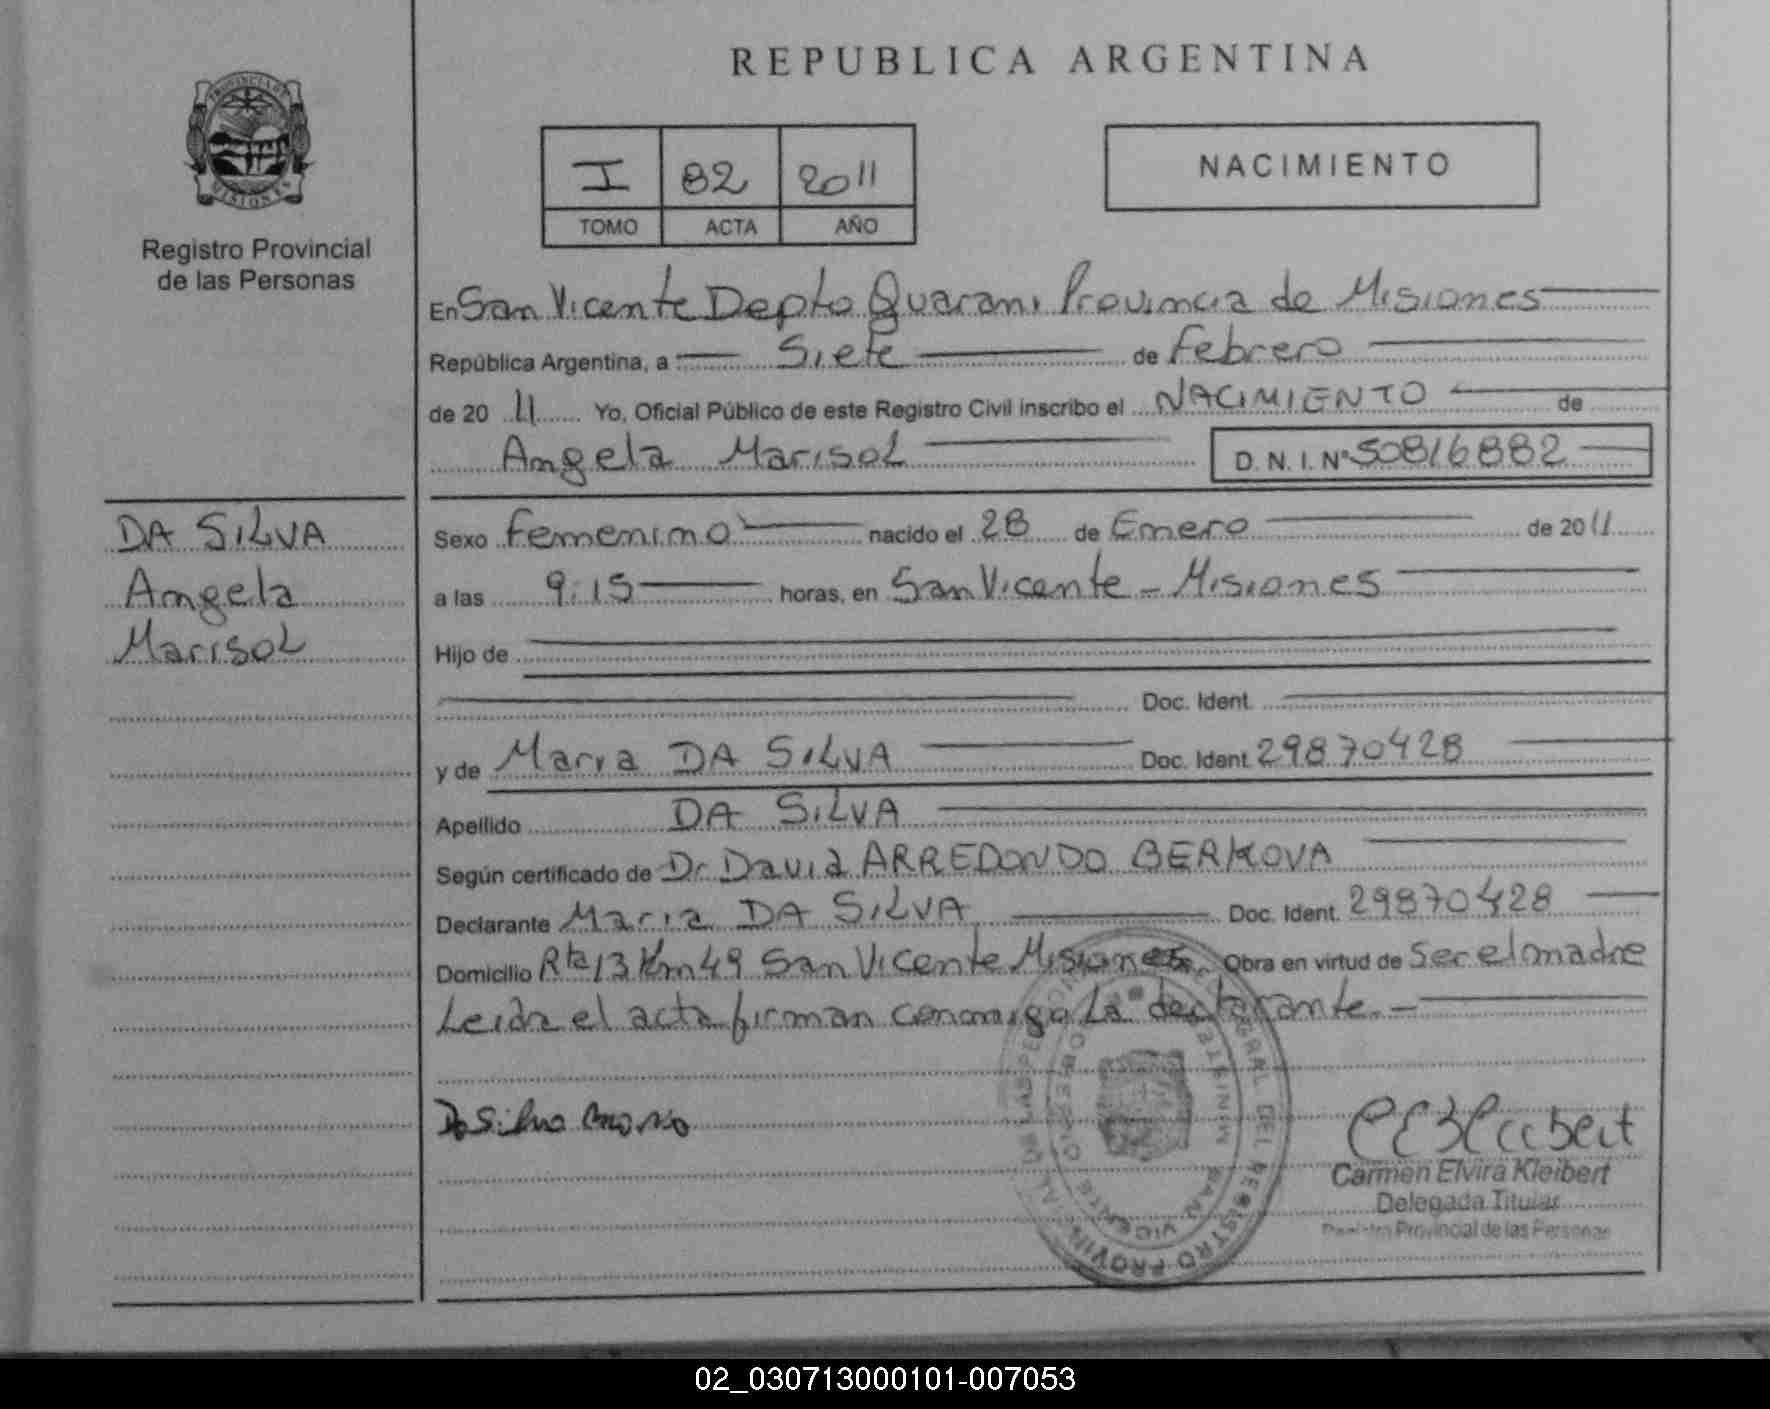 REPUBLICA ARGENTINA
PROVINCIA DE
MISIONES
Registro Provincial
de las Personas
I 82 2011
TOMO ACTA AÑO
NACIMIENTO
En San Vicente Depto Guarani Provincia de Misiones
República Argentina, a Siete de Febrero
de 20 11 Yo, Oficial Público de este Registro Civil inscribo el NACIMIENTO de
Angela Marisol D.N.I. Nº 50816882
DA SILVA
Angela
Marisol
Sexo Femenino nacido el 28 de Enero de 2011
a las 9:15 horas, en San Vicente - Misiones
Hijo de
Doc. Ident.
y de Maria DA SILVA Doc. Ident. 29870428
Apellido DA SILVA
Según certificado de Dr. David ARREDONDO BERKOVA
Declarante Maria DA SILVA Doc. Ident. 29870428
Domicilio Rta 13 Km 49 San Vicente Misiones. Obra en virtud de Ser el madre
Leida el acta firman conmigo La declarante. -
Da Silva
Carmen Elvira Kleibert
Delegada Titular
Registro Provincial de las Personas
SAN VICENTE
02_030713000101-007053